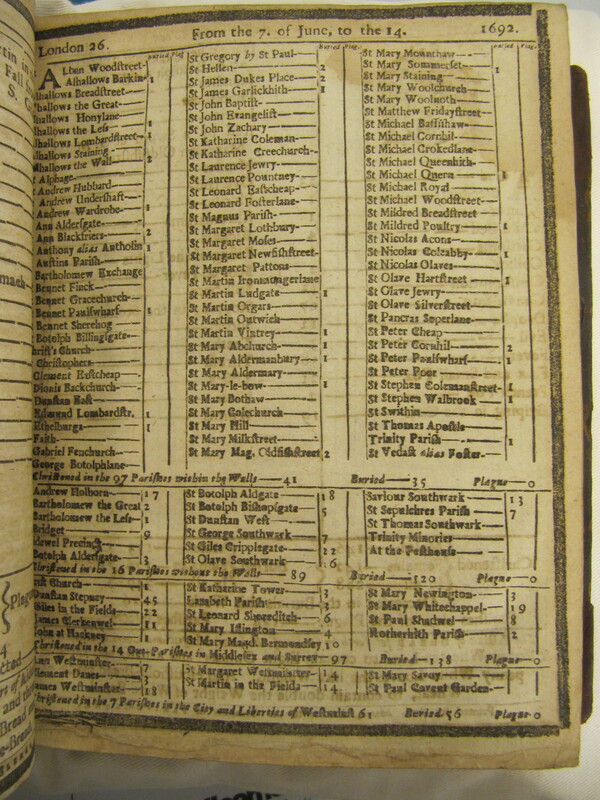 London 26. From the 7. of June, to the 14. 1692.
Buried Plag.
Buried Plag.
Buried Plag.
ALban Woodſtreet
Alhallows Barkin 1
lhallows Breadſtreet
lhallows the Great
lhallows Honylane
lhallows the Leſs 1
lhallows Lombardſtreet 1
lhallows Staining
lhallows the Wall 2
Alphage
Andrew Hubbard
Andrew Underſhaft
Andrew Wardrobe 1
Ann Alderſgate
Ann Blackfriers 2
Anthony alias Antholin 1
Auſtins Pariſh
Bartholomew Exchange
Bennet Finck
Bennet Gracechurch
Bennet Paulſwharf 1
Bennet Sherehog
Botolph Billingſgate
hriſt's Church
Chriſtophers
Clement Eaſtcheap
Dionis Backchurch
Dunſtan Eaſt
Edmund Lombardſtr. 1
Ethelburga 1
Faith
Gabriel Fenchurch
George Botolphlane
St Gregory by St Paul
St Hellen 2
St James Dukes Place 2
St James Garlickhith 1
St John Baptiſt
St John Evangeliſt
St John Zachary
St Katharine Coleman
St Katharine Creechurch
St Laurence Jewry
St Laurence Pountney
St Leonard Eaſtcheap
St Leonard Foſterlane
St Magnus Pariſh
St Margaret Lothbury
St Margaret Moſes
St Margaret Newfiſhſtreet
St Margaret Pattons
St Martin Ironmongerlane
St Martin Ludgate 1
St Martin Orgars
St Martin Outwich
St Martin Vintrey 1
St Mary Abchurch 1
St Mary Aldermanbury 1
St Mary Aldermary
St Mary-le-bow 1
St Mary Bothaw
St Mary Colechurch
St Mary Hill
St Mary Milkſtreet
St Mary Mag. Oldfiſhſtreet 2
St Mary Mounthaw
St Mary Sommerſet 1
St Mary Staining
St Mary Woolchurch
St Mary Woolnoth
St Matthew Fridayſtreet
St Michael Baſſiſhaw
St Michael Cornhil
St Michael Crokedlane
St Michael Queenhith
St Michael Quern 1
St Michael Royal
St Michael Woodſtreet
St Mildred Breadſtreet
St Mildred Poultry 1
St Nicolas Acons
St Nicolas Coleabby 1
St Nicolas Olaves
St Olave Hartſtreet 1
St Olave Jewry
St Olave Silverſtreet
St Pancras Soperlane
St Peter Cheap
St Peter Cornhil 2
St Peter Paulſwharf 1
St Peter Poor
St Stephen Colemanſtreet 1
St Stephen Walbrook 1
St Swithin
St Thomas Apoſtle
Trinity Pariſh 1
St Vedaſt alias Foſter
Chriſtened in the 97 Pariſhes within the Walls 41 Buried 35 Plague 0
Andrew Holborn 17
Bartholomew the Great 2
Bartholomew the Leſs 1
Bridget 9
dewel Precinct
Botolph Alderſgate 3
St Botolph Aldgate 18
St Botolph Biſhopſgate 5
St Dunſtan Weſt
St George Southwark 7
St Giles Cripplegate 22
St Olave Southwark 16
Saviour Southwark 13
St Sepulchres Pariſh 7
St Thomas Southwark
Trinity Minories
At the Peſthouſe
Chriſtened in the 16 Pariſhes without the Walls 89 Buried 120 Plague 0
Church 1
Dunſtan Stepney 45
Giles in the Fields 22
James Clerkenwel 11
John at Hackney 1
St Katharine Tower 3
Lambeth Pariſh 3
St Leonard Shoreditch 6
St Mary Iſlington 4
St Mary Magd. Bermondſey 10
St Mary Newington 3
St Mary Whitechappel 19
St Paul Shadwel 8
Rotherhith Pariſh 2
Chriſtened in the 14 Out-Pariſhes in Middleſex and Surrey 97 Buried 138 Plague 0
Ann Weſtminſter 7
Clement Danes 3
James Weſtminſter 18
St Margaret Weſtminſter 14
St Martin in the Fields 14
St Mary Savoy
St Paul Covent Garden
Chriſtened in the 7 Pariſhes in the City and Liberties of Weſtminſt 61 Buried 56 Plague 0